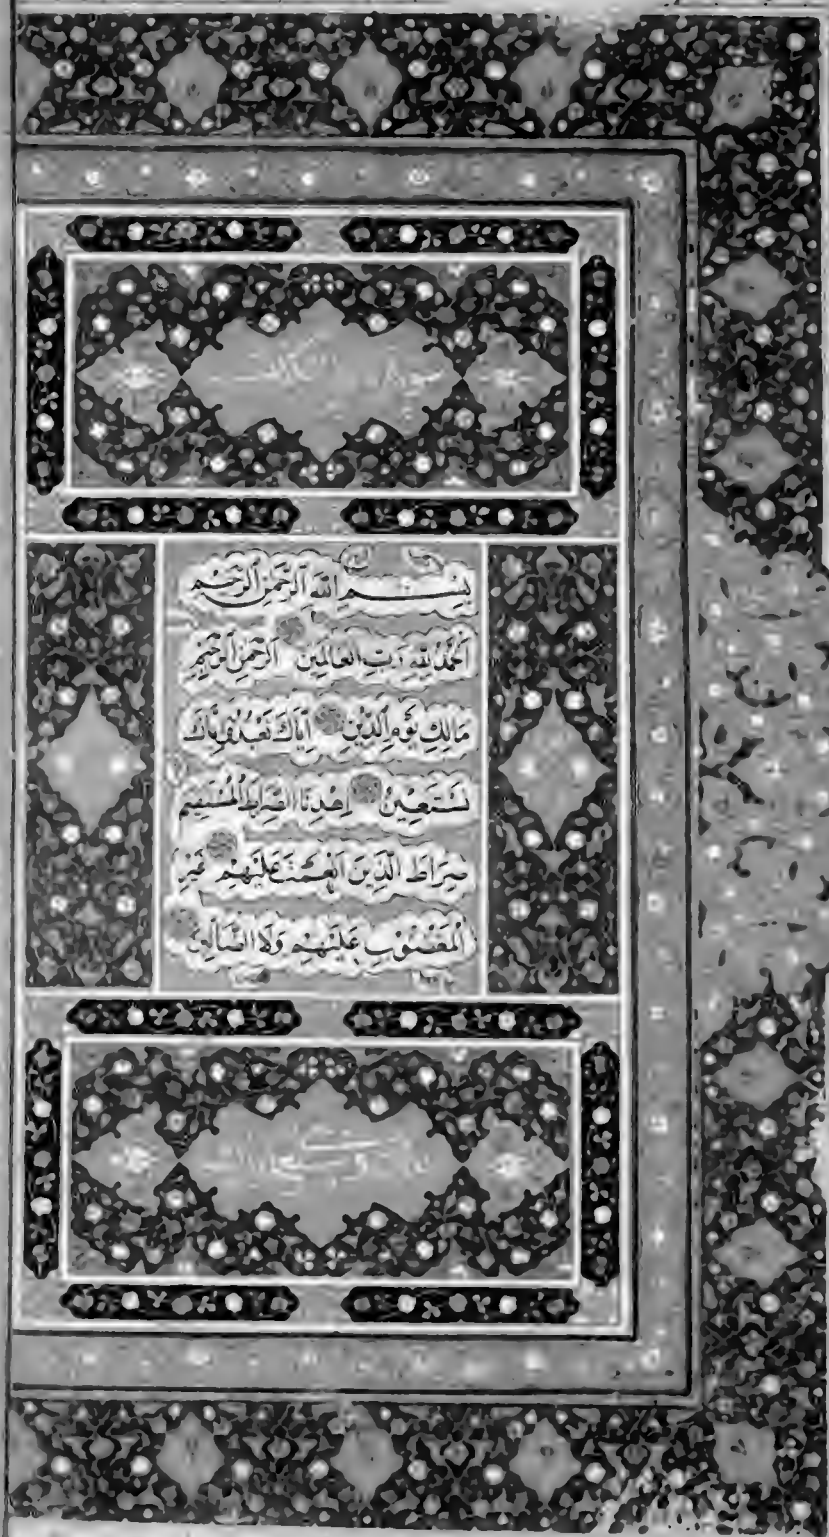 سورة
بِسْمِ اللَّهِ الرَّحْمَٰنِ الرَّحِيمِ
اَلْحَمْدُ لِلَّهِ رَبِّ الْعَالَمِينَ الرَّحْمَٰنِ الرَّحِيمِ
مَالِكِ يَوْمِ الدِّينِ اِيَّاكَ نَعْبُدُ وَاِيَّاكَ
نَسْتَعِينُ اِهْدِنَا الصِّرَاطَ الْمُسْتَقِيمَ
صِرَاطَ الَّذِينَ اَنْعَمْتَ عَلَيْهِمْ غَيْرِ
الْمَغْضُوبِ عَلَيْهِمْ وَلَا الضَّالِّينَ